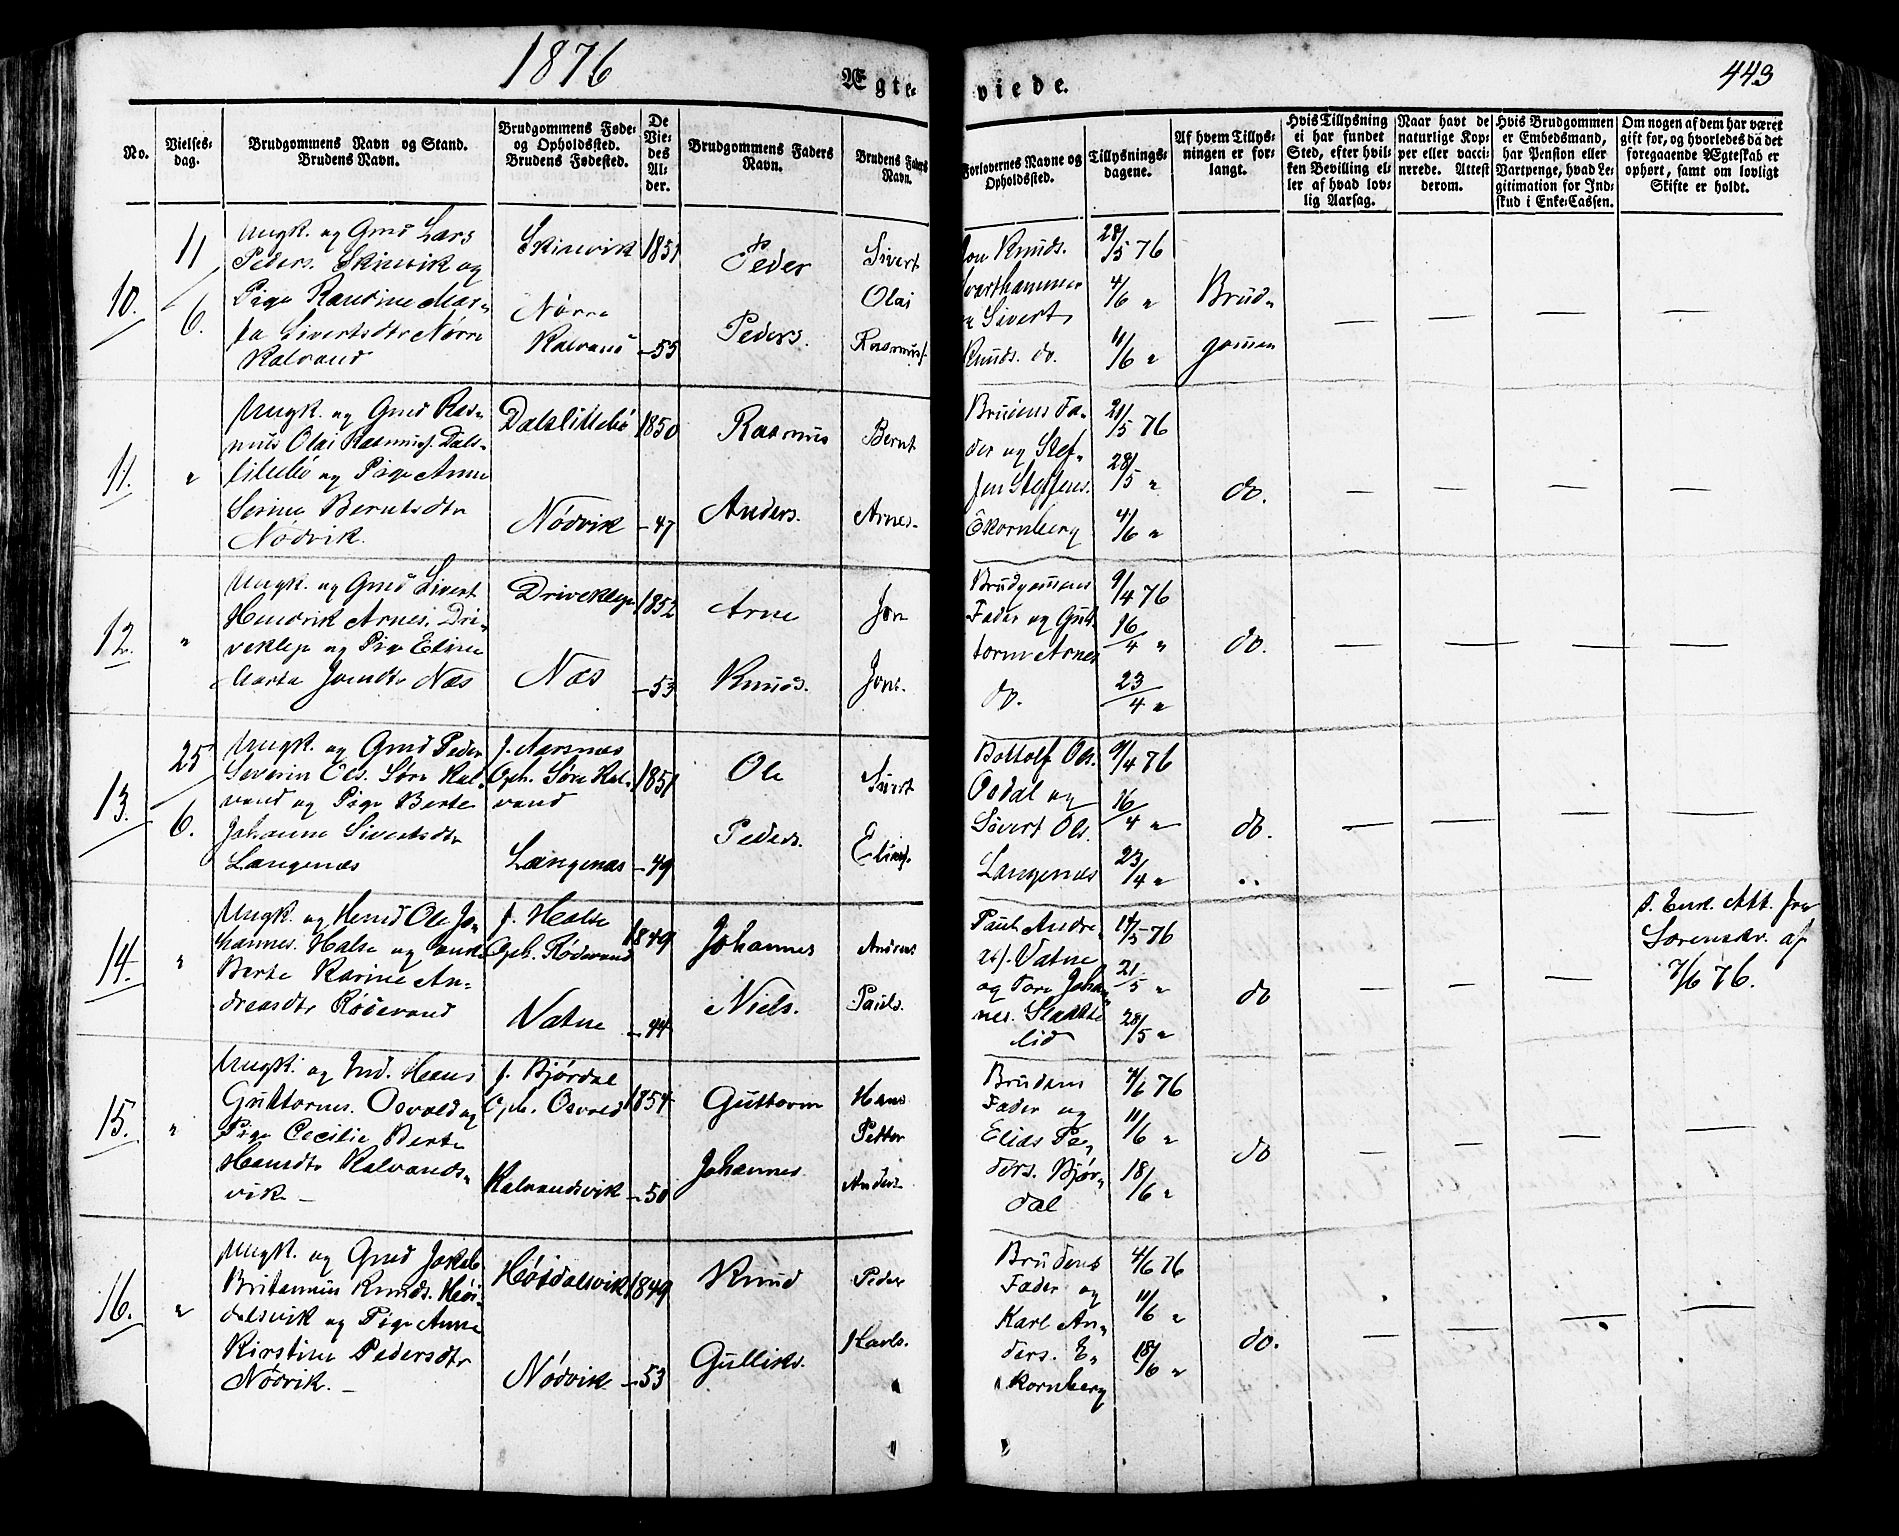 1876
443
Ægte- viede.
No.
Vielses-
dag.
Brudgommens Navn og Stand.
Brudens Navn.
Brudgommens Føde-
og Opholdssted.
Brudens Fødested.
De
Vie-
des
Al-
der.
Brudgommens Faders
Navn.
Brudens Faders
Navn.
Forlovernes Navne og
Opholdssted.
Tillysnings-
dagene.
Af hvem Tillys-
ningen er for-
langt.
Hvis Tillysning
ei har fundet
Sted, efter hvil-
ken Bevilling el-
ler af hvad lov-
lig Aarsag.
Naar havt de
naturlige Kop-
per eller vacci-
nerede. Attest
derom.
Hvis Brudgommen
er Embedsmand,
har Pension eller
Vartpenge, hvad Le-
gitimation for Ind-
skud i Enke-Cassen.
Om nogen af dem har været
gift før, og hvorledes da det
foregaaende Ægteskab er
ophørt, samt om lovligt
Skifte er holdt.
10.
11/6.
Ungk. og Gmd Lars
Peders. Skinvik og
Pige Randine Mar-
ta Sivertsdtr Nørre
Kalvand
Skinvik
Nørre
Kalvand
1851
-55
Peder
Peders.
Sivert
Olai
Rasmusf.
Jon Knuds.
Svarthammer
og Sivert
Knuds. do.
28/5 76
4/6 "
11/6 "
Brud-
gommen
— — — —
11.
"
Ungk. og Gmd Ras-
mus Olai Rasmusf. Dals-
lillebø og Pige Anne
Serine Berntsdtr
Nødvik.
Dalslillebø
Nødvik
1850
-47
Rasmus
Anders.
Bernt
Arnes.
Brudens Fa-
der og Stef-
fen Steffens.
Ekornberg
21/5 76
28/5 "
4/6 "
do.
— — — —
12.
"
Ungk. og Gmd Sivert
Hendrik Arnes. Dri-
veklep og Pige Eline
Marta Jonsdtr Næs
Driveklep
Næs
1852
-53
Arne
Knuds.
Jon
Jons.
Brudgommens
Fader og Gut-
torm Arnes
do.
9/4 76
16/4 "
23/4 "
do.
— — — —
13.
25/6.
Ungk. og Gmd Peder
Severin Ols. Søre Kal-
vand og Pige Berte
Johanne Sivertsdtr
Langenæs
f. Aarsnæs
Oph. Søre Kal-
vand
Langenæs
1851
-49
Ole
Peders.
Sivert
Elingf.
Bottolf Ols.
Osdal og
Sivert Ols.
Langenæs
9/4 76
16/4 "
23/4 "
do.
— — — —
14.
"
Ungk. og Hmd Ole Jo-
hannes. Halse og Enke
Berte Karine An-
dreasdtr Rødevand
f. Halse
Oph. Rødevand
Vatne
1849
-44
Johannes
Niels.
Andreas
Pauls.
Paul Andre-
asf. Vatne
og Tore Johan-
nes. Slakkte
lid
14/5 76
21/5 "
28/5 "
do
— — —
s. Enk. Att. fra
Sorenskr. af
7/6 76.
15.
"
Ungk. og Ind. Hans
Guttorms. Osvold og
Pige Cecilie Berte
Hansdtr Kalvands-
vik —
f. Bjørdal
Oph. Osvold
Kalvandsvik
1854
-50
Guttorm
Johannes.
Hans
Petter
Anders.
Brudens
Fader og
Elias Pe-
ders. Bjør-
dal
4/6 76
11/6 "
18/6 "
do
— — — —
16.
"
Ungk. og Gmd Jakob
Britanius Knuds. Høi-
dalsvik og Pige Anne
Kirstine Pedersdtr
Nødvik. —
Høidalsvik
Nødvik
1849
-53
Knud
Gulliks.
Peder
Karls.
Brudens
Fader og
Karl An-
ders. E-
kornberg
4/6 76
11/6 "
18/6 "
do.
— — — —